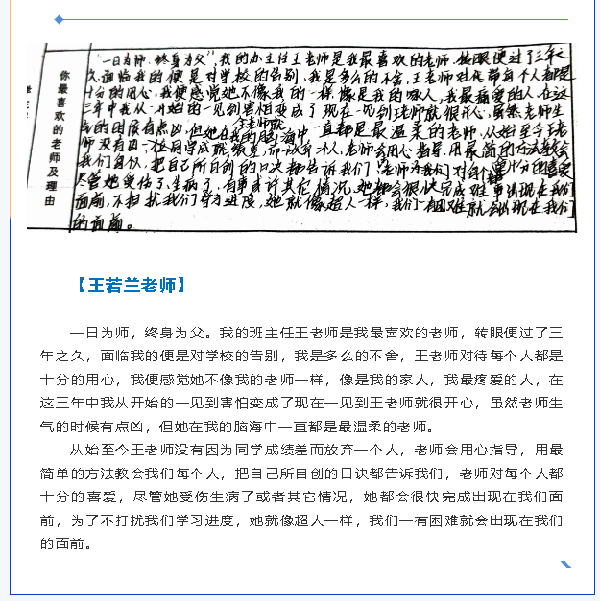 你最喜欢的老师及理由
"一日为师,终身为父"我的办主任王老师是我最喜欢的老师,转眼便过了三年之
久,面临我的便是对学校的告别,我是多么的不舍,王老师对待每个人都是
十分的用心,我便感觉她不像我的一样,像是我的家人,我最疼爱的人,在这
三年中我从开始的一见到害怕变成了现在一见到老师就很开心,虽然老师生
气的时候有点凶,但她在我的脑海中一直都是最温柔的老师,从始至今王老
师没有因
人,老师会用心指导,用最简单的方法教会
我们每个人,把自己所目创的口决都告诉我们,老师对每个都十分的喜爱
尽管她受伤了、生病了,或者其它情况,她都会很快完成出现在我们
面前,不打扰我们学习进度,她就像超人一样,我们一有困难就会出现在我们
的面前。
【王若兰老师】
一日为师,终身为父。我的班主任王老师是我最喜欢的老师,转眼便过了三
年之久,面临我的便是对学校的告别,我是多么的不舍,王老师对待每个人都是
十分的用心,我便感觉她不像我的老师一样,像是我的家人,我最疼爱的人,在
这三年中我从开始的一见到害怕变成了现在一见到王老师就很开心,虽然老师生
气的时候有点凶,但她在我的脑海中一直都是最温柔的老师。
从始至今王老师没有因为同学成绩差而放弃一个人,老师会用心指导,用最
简单的方法教会我们每个人,把自己所目创的口诀都告诉我们,老师对每个人都
十分的喜爱,尽管她受伤生病了或者其它情况,她都会很快完成出现在我们面
前,为了不打扰我们学习进度,她就像超人一样,我们一有困难就会出现在我们
的面前。